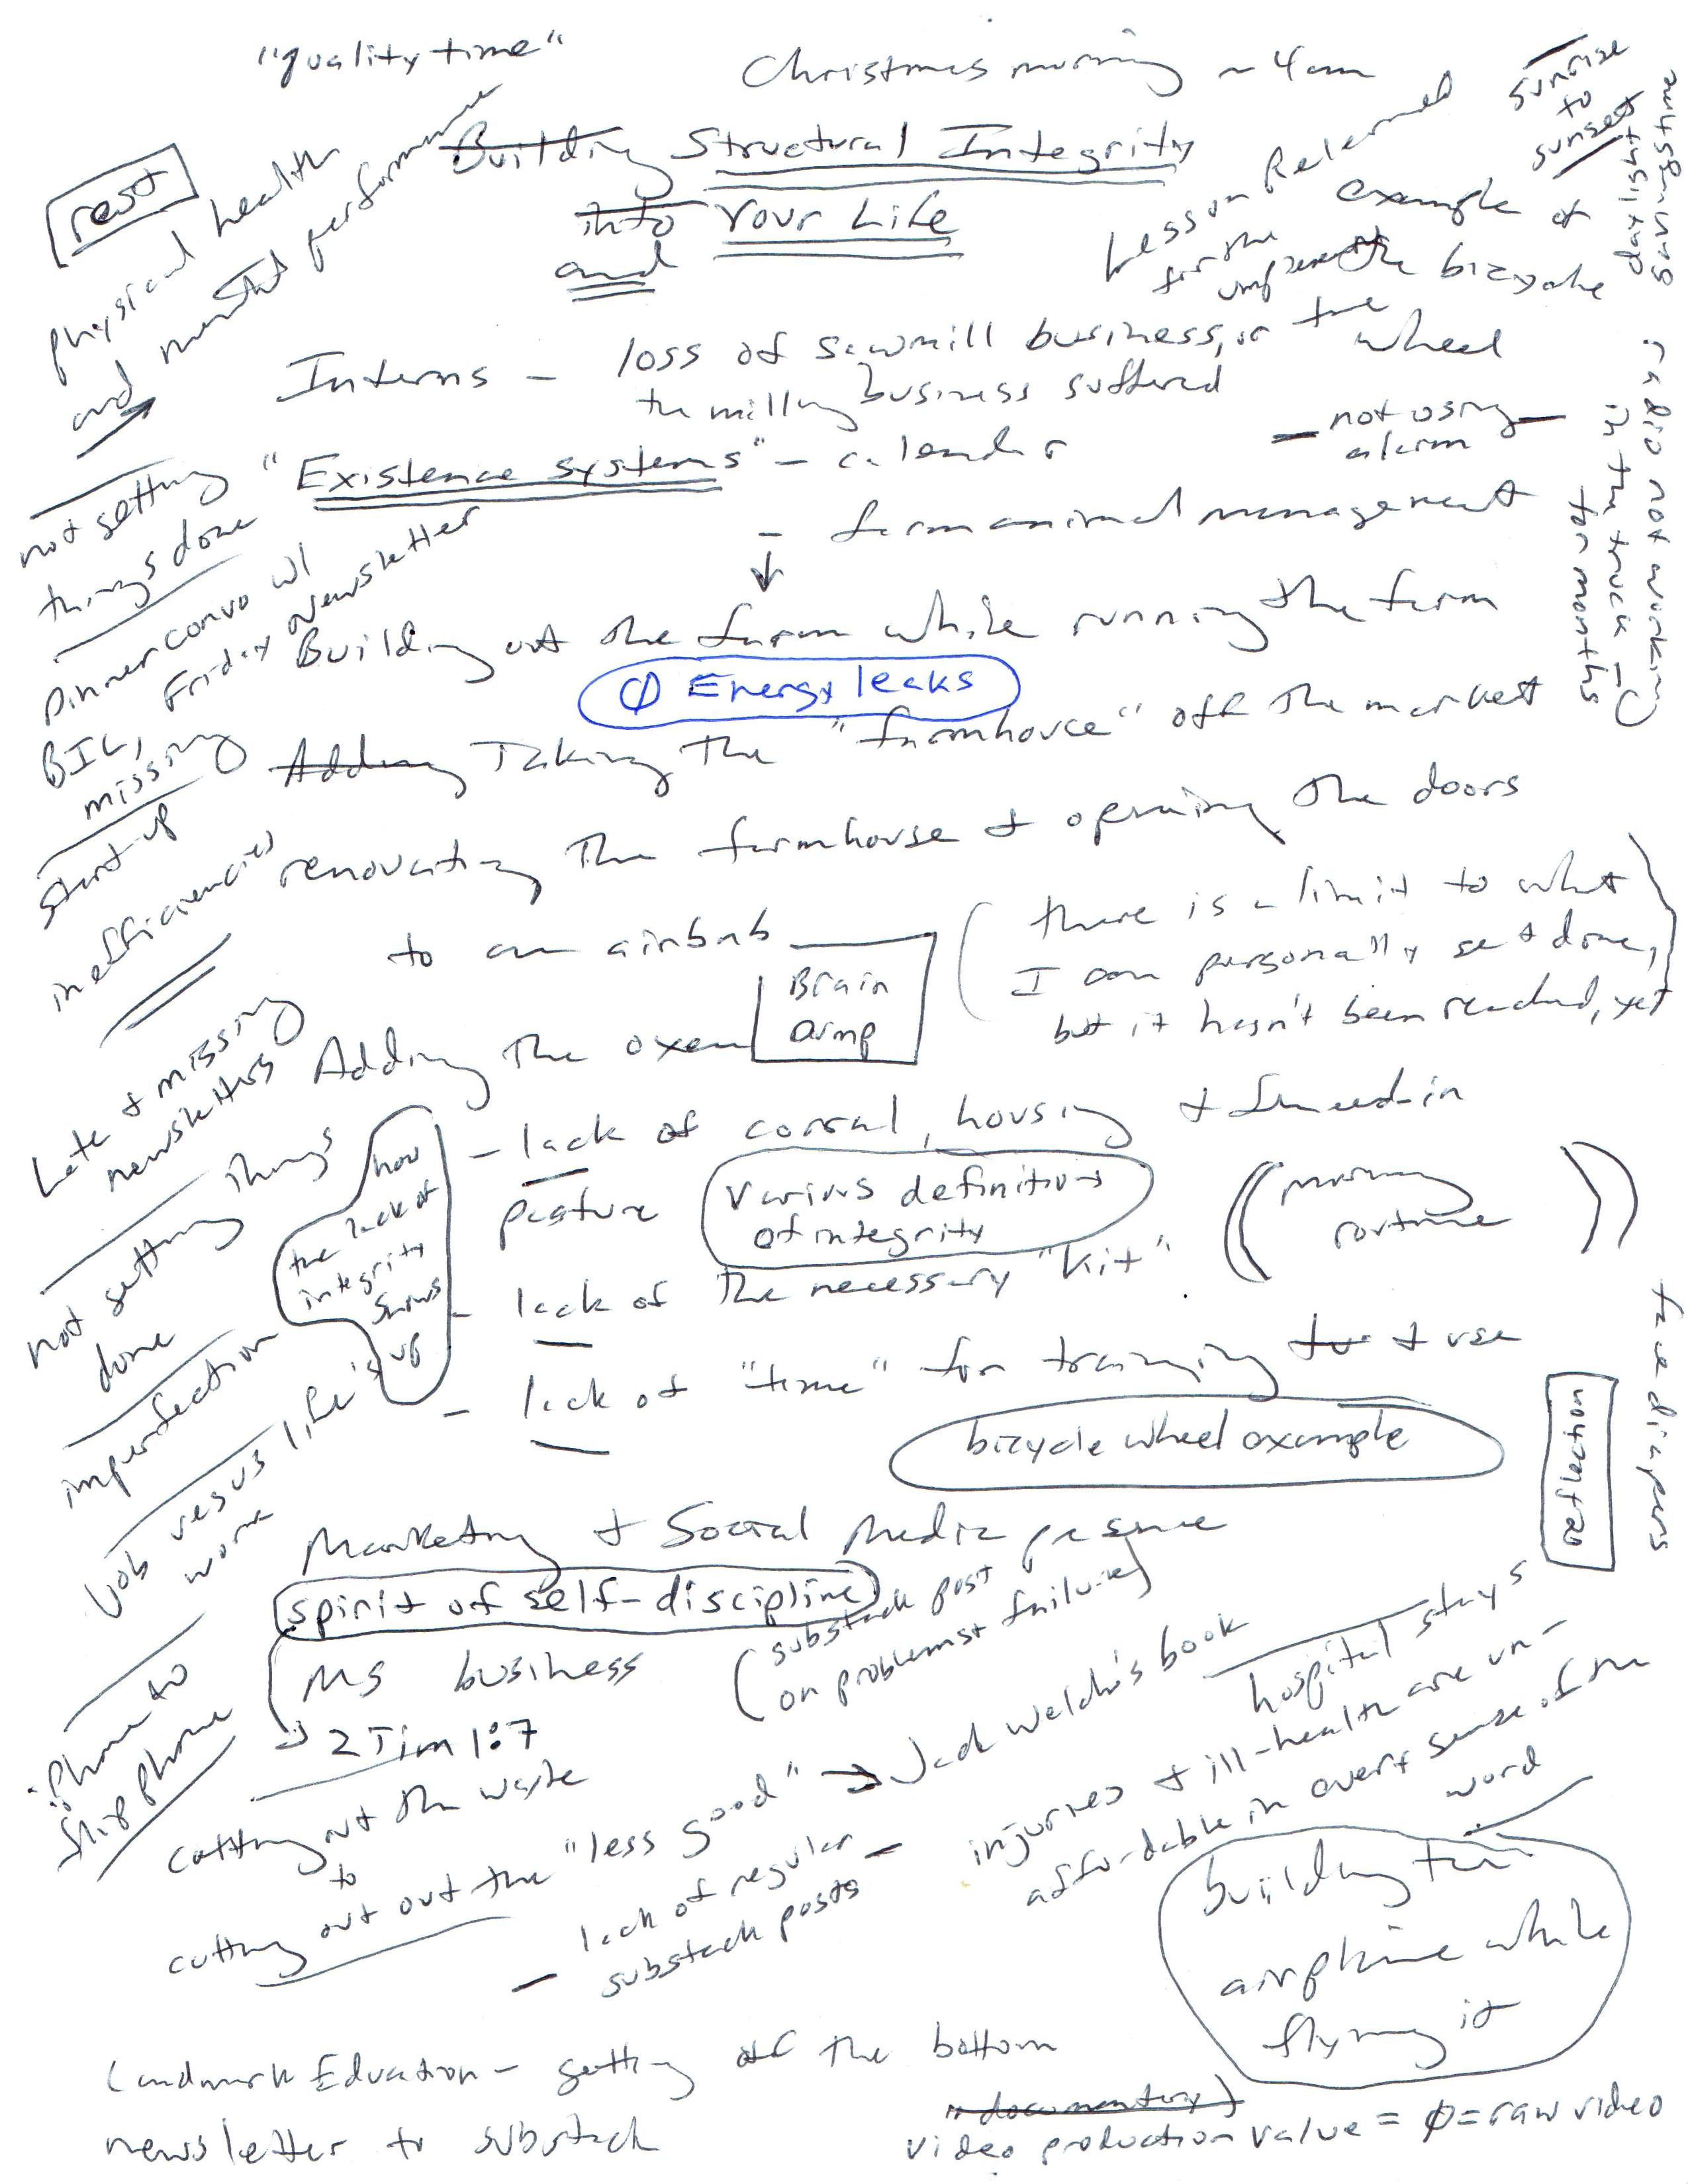 "quality time"
Christmas morning ~ 4am
Building Structural Integrity
into Your Life
and
rest
physical health
and mental performance
Lesson Relearned
for the
sunrise
to
sunset
burning daylight
example of
the bicycle
wheel
Interns - loss of sawmill business, or the
the milling business suffered
- not using -
alarm
radio not working
in the truck -
for months
"Existence systems" - calendar
- farm animal management
not getting
things done
Dinner convo w/
BIL, Friday Newsletter
missing
Building out the farm while running the farm
Ø Energy leaks
Adding Taking the "farmhouse" off the market
renovating the farmhouse & opening the doors
to an airbnb
start-up
inefficiencies
Brain
dump
(there is a limit to what
I can personally get done,
but it hasn't been reached, yet)
Late & missing
newsletters
Adding the oxen
- lack of corral, housing & fenced-in
pasture
various definitions
of integrity
((morning
routine))
how
the lack of
integrity
shows
up
- lack of the necessary "kit"
- lack of "time" for training to & use
not getting things
done
imperfection
bicycle wheel example
reflection
face diapers
Job vesus life's
work
Marketing & Social Media presence
spirit of self-discipline
(substack post
on problems & failures)
MS business
2 Tim 1:7
iPhone to
flip phone
cutting out the waste
to
cutting out out the "less good" → Jack Welch's book
- lack of regular
substack posts -
hospital stays
injuries & ill-health are un-
affordable in every sense of the
word
building the
airplane while
flying it
Landmark Education - getting off the bottom
newsletter to substack
"documentary"
video production value = Ø = raw video